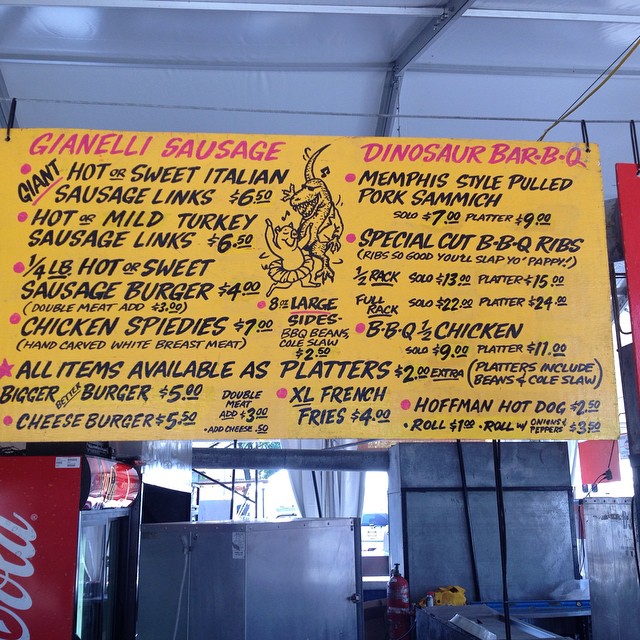 GIANELLI SAUSAGE
GIANT HOT OR SWEET ITALIAN
SAUSAGE LINKS $6.50
HOT OR MILD TURKEY
SAUSAGE LINKS $6.50
1/4 LB HOT OR SWEET
SAUSAGE BURGER $4.00
(DOUBLE MEAT ADD $3.00)
CHICKEN SPIEDIES $7.00
(HAND CARVED WHITE BREAST MEAT)
8 OZ LARGE
SIDES-
BBQ BEANS,
COLE SLAW
$2.50
DINOSAUR BAR-B-Q
MEMPHIS STYLE PULLED
PORK SAMMICH
SOLO $7.00 PLATTER $9.00
SPECIAL CUT B-B-Q RIBS
(RIBS SO GOOD YOU'LL SLAP YO' PAPPY!)
1/2 RACK SOLO $13.00 PLATTER $15.00
FULL RACK SOLO $22.00 PLATTER $24.00
B-B-Q 1/2 CHICKEN
SOLO $9.00 PLATTER $11.00
ALL ITEMS AVAILABLE AS PLATTERS $2.00 EXTRA (PLATTERS INCLUDE
BEANS & COLE SLAW)
BIGGER BETTER BURGER $5.00
CHEESEBURGER $5.50
DOUBLE
MEAT
ADD $3.00
• ADD CHEESE .50
XL FRENCH
FRIES $4.00
HOFFMAN HOT DOG $2.50
• ROLL $1.00 • ROLL W/ ONIONS & PEPPERS $3.50
Cola